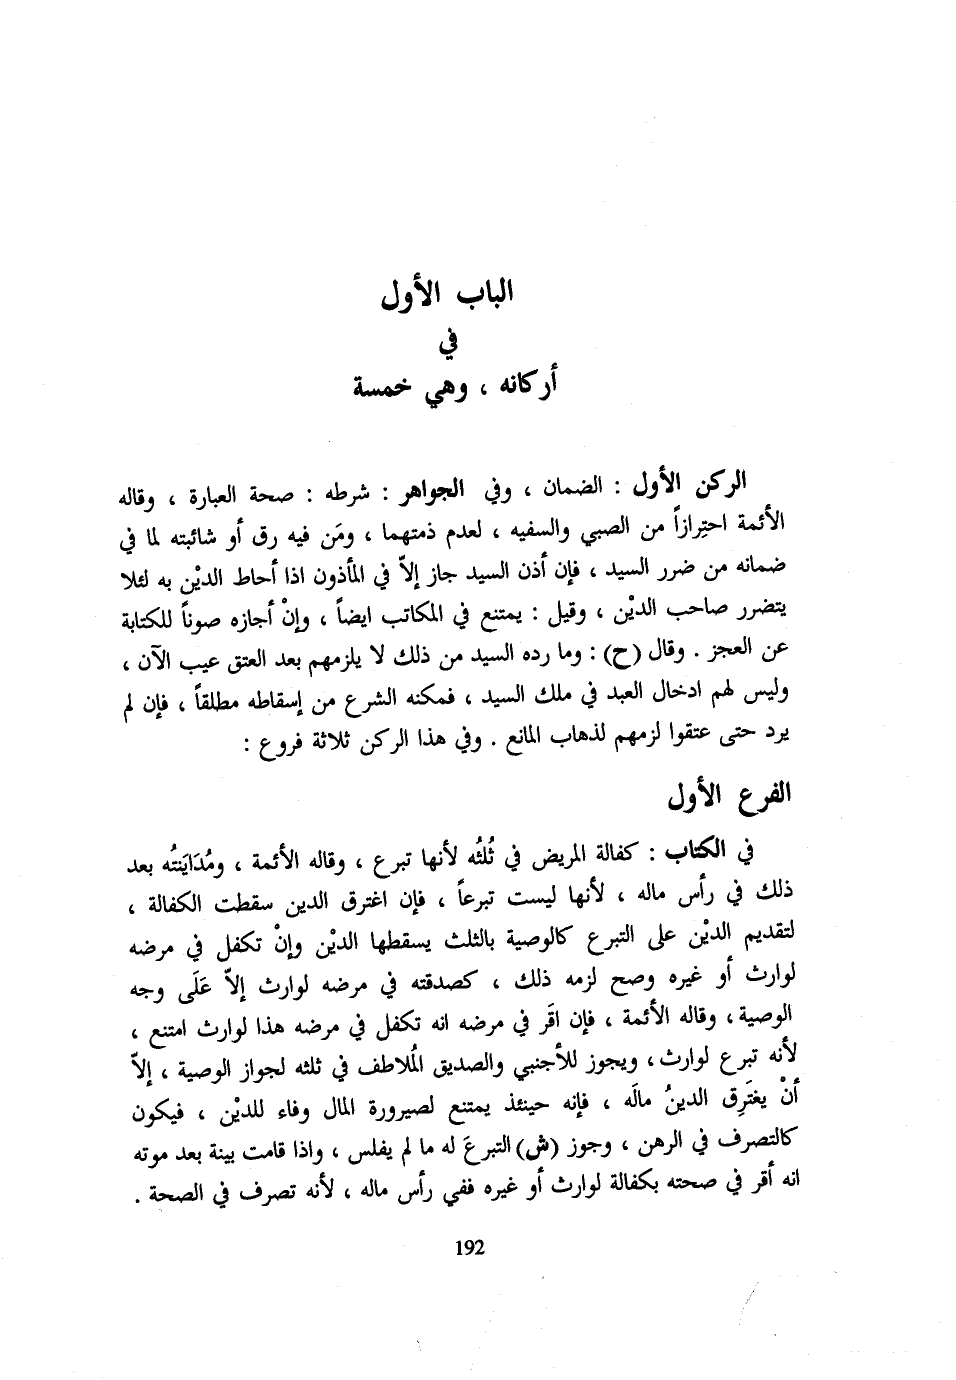 الباب الأول
في
أركانه ، وهي خمسة
الركن الأول : الضمان ، وفي الجواهر : شرطه : صحة العبارة ، وقاله
الأئمة احتِرازاً من الصبي والسفيه ، لعدم ذمتهما ، ومَن فيه رق أو شائبته لما في
ضمانه من ضرر السيد ، فإن أذن السيد جاز إلاّ في المأذون اذا أحاط الديْن به لئلا
يتضرر صاحب الديْن ، وقيل : يمتنع في المكاتب ايضاً ، وإنْ أجازه صوناً للكتابة
عن العجز . وقال (ح) : وما رده السيد من ذلك لا يلزمهم بعد العتق عيب الآن ،
وليس لهم ادخال العبد في ملك السيد ، فمكنه الشرع من إسقاطه مطلقاً ، فإن لم
يرد حتى عتقوا لزمهم لذهاب المانع . وفي هذا الركن ثلاثة فروع :
الفرع الأول
في الكتاب : كفالة المريض في ثُلثُه لأنها تبرع ، وقاله الأئمة ، ومُدَايَنتُه بعد
ذلك في رأس ماله ، لأنها ليست تبرعاً ، فإن اغترق الدين سقطت الكفالة ،
لتقديم الديْن على التبرع كالوصية بالثلث يسقطها الديْن وإنْ تكفل في مرضه
لوارث أو غيره وصح لزمه ذلك ، كصدقته في مرضه لوارث إلاّ عَلَى وجه
الوصية ، وقاله الأئمة ، فإن اقَر في مرضه انه تكفل في مرضه هذا لوارث امتنع ،
لأنه تبرع لوارث ، ويجوز للأجنبي والصديق المُلاطف في ثلثه لجواز الوصية ، إلاّ
أنْ يغتَرِق الدينُ مالَه ، فإنه حينئذ يمتنع لصيرورة المال وفاء للديْن ، فيكون
كالتصرف في الرهن ، وجوز (ش) التبرعَ له ما لم يفلس ، واذا قامت بينة بعد موته
انه أقر في صحته بكفالة لوارث أو غيره ففي رأس ماله ، لأنه تصرف في الصحة .
192